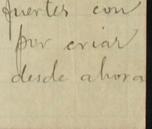 fuertes con
por criar
desde ahora